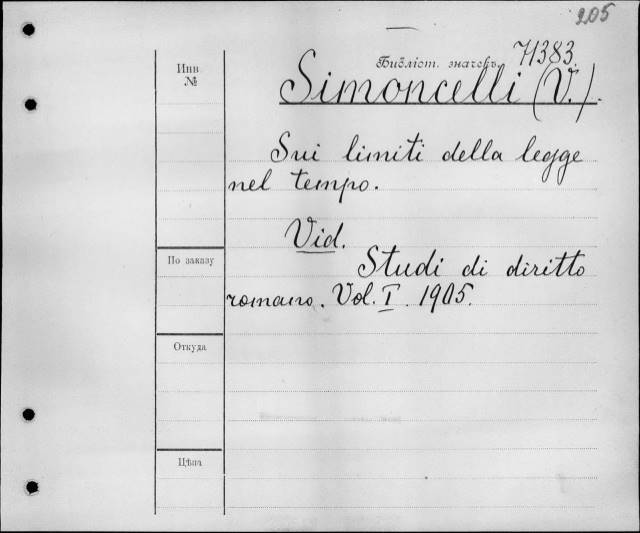 205
Библіот. значекъ 71383.
Инв. №
Simoncelli (V.).
Sui limiti della legge
nel tempo.
Vid.
По заказу
Studi di diritto
romano. Vol. I. 1905.
Откуда
Цѣна